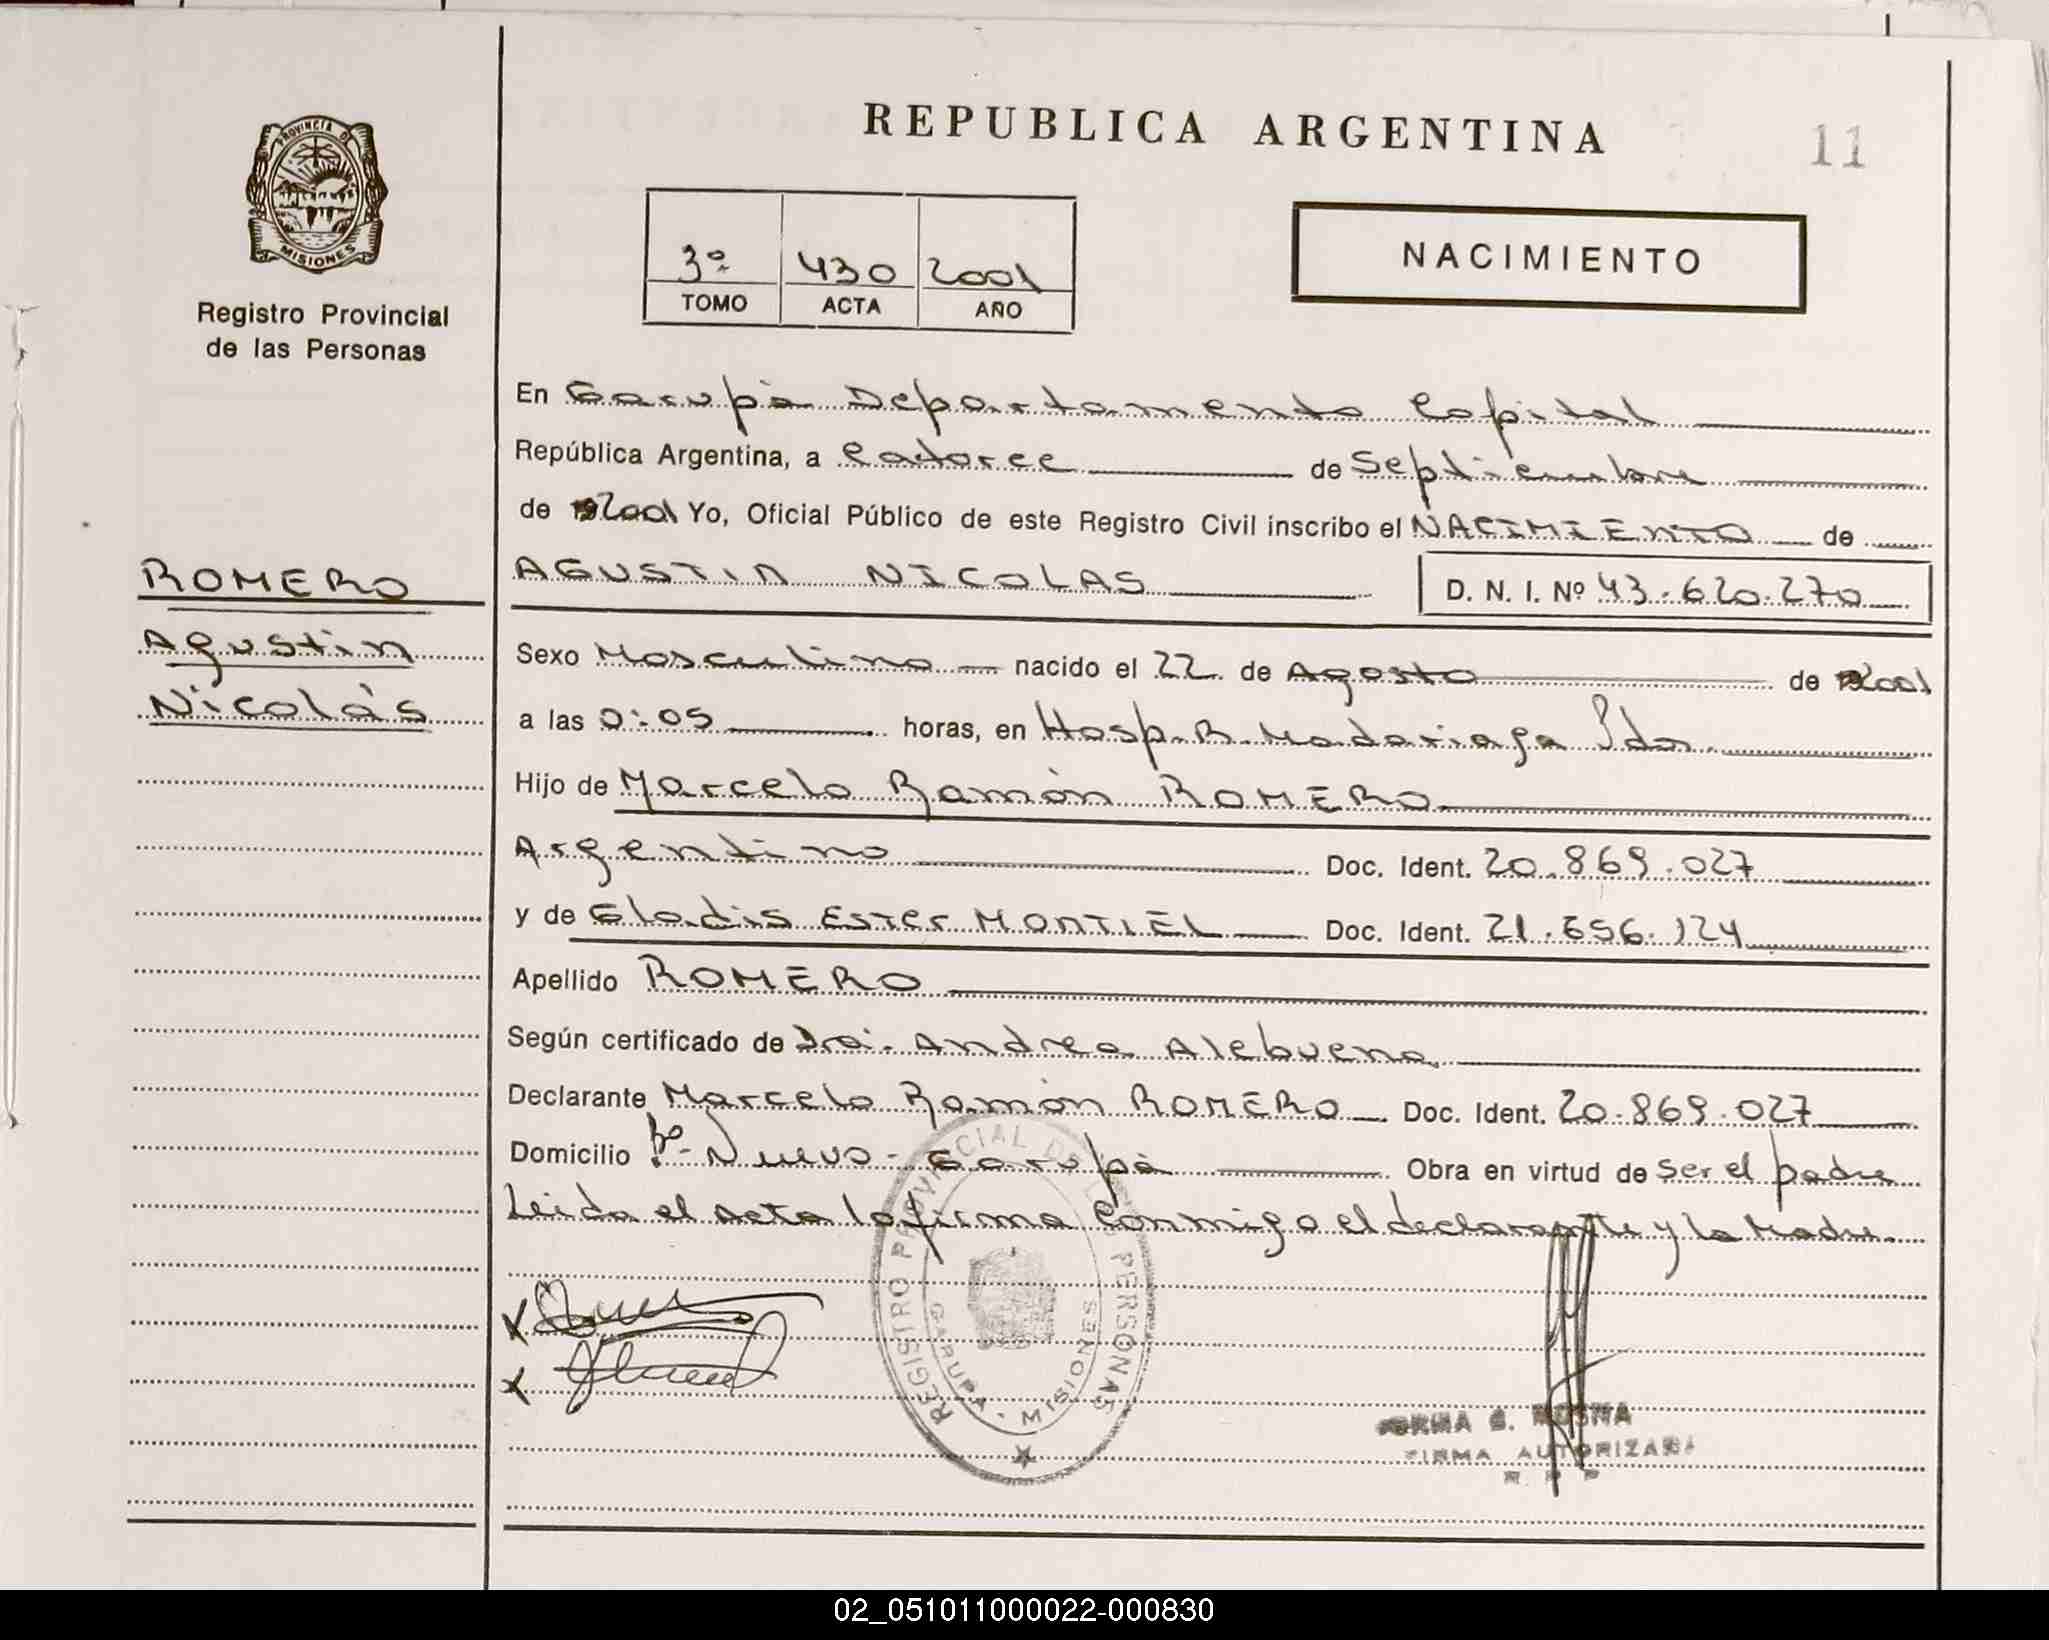 REPUBLICA ARGENTINA
11
PROVINCIA DE
MISIONES
Registro Provincial
de las Personas
3º 430 2001
TOMO ACTA AÑO
NACIMIENTO
En Garupá Departamento Capital
República Argentina, a Catorce de Septiembre
de 2001 Yo, Oficial Público de este Registro Civil inscribo el NACIMIENTO de
ROMERO
Agustin
Nicolás
AGUSTIN NICOLAS D. N. I. Nº 43.620.270
Sexo Masculino nacido el 22 de Agosto de 2001
a las 0:05 horas, en Hosp. R. Madariaga Pdas.
Hijo de Marcelo Ramón ROMERO
Argentino Doc. Ident. 20.869.027
y de Gladis Ester MONTIEL Doc. Ident. 21.656.124
Apellido ROMERO
Según certificado de Dra. Andrea
Declarante Marcelo Ramón ROMERO Doc. Ident. 20.869.027
Domicilio Bº Nuevo - Garupá Obra en virtud de ser el padre
Leida el Acta la firma conmigo el declarante y la Madre.
REGISTRO PROVINCIAL DE LAS PERSONAS
GARUPA - MISIONES
FIRMA AUTORIZADA
R. P. P.
02_051011000022-000830